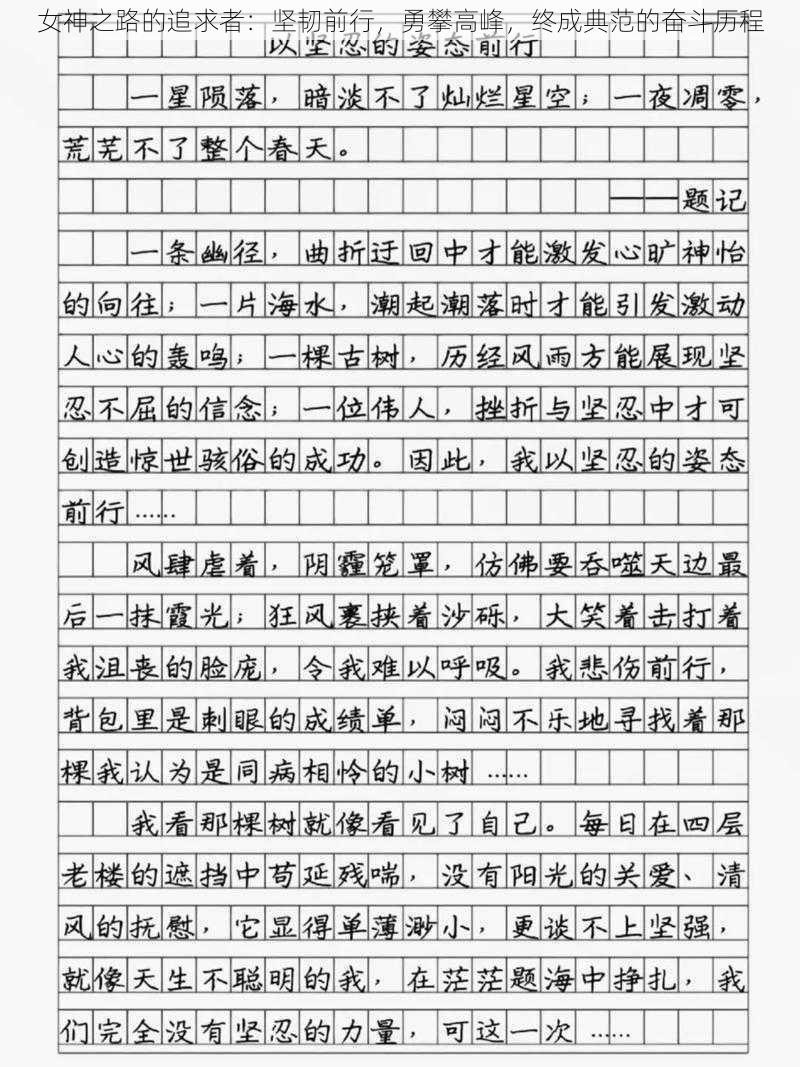 女神之路的追求者：坚韧前行，勇攀高峰，终成典范的奋斗历程
以坚忍的姿态前行
一星陨落，暗淡不了灿烂星空；一夜凋零，
荒芜不了整个春天。
——题记
一条幽径，曲折迂回中才能激发心旷神怡
的向往；一片海水，潮起潮落时才能引发激动
人心的轰鸣；一棵古树，历经风雨方能展现坚
忍不屈的信念；一位伟人，挫折与坚忍中才可
创造惊世骇俗的成功。因此，我以坚忍的姿态
前行……
风肆虐着，阴霾笼罩，仿佛要吞噬天边最
后一抹霞光；狂风裹挟着沙砾，大笑着击打着
我沮丧的脸庞，令我难以呼吸。我悲伤前行，
背包里是刺眼的成绩单，闷闷不乐地寻找着那
棵我认为是同病相怜的小树……
我看那棵树就像看见了自己。每日在四层
老楼的遮挡中苟延残喘，没有阳光的关爱、清
风的抚慰，它显得单薄渺小，更谈不上坚强，
就像天生不聪明的我，在茫茫题海中挣扎，我
们完全没有坚忍的力量，可这一次……